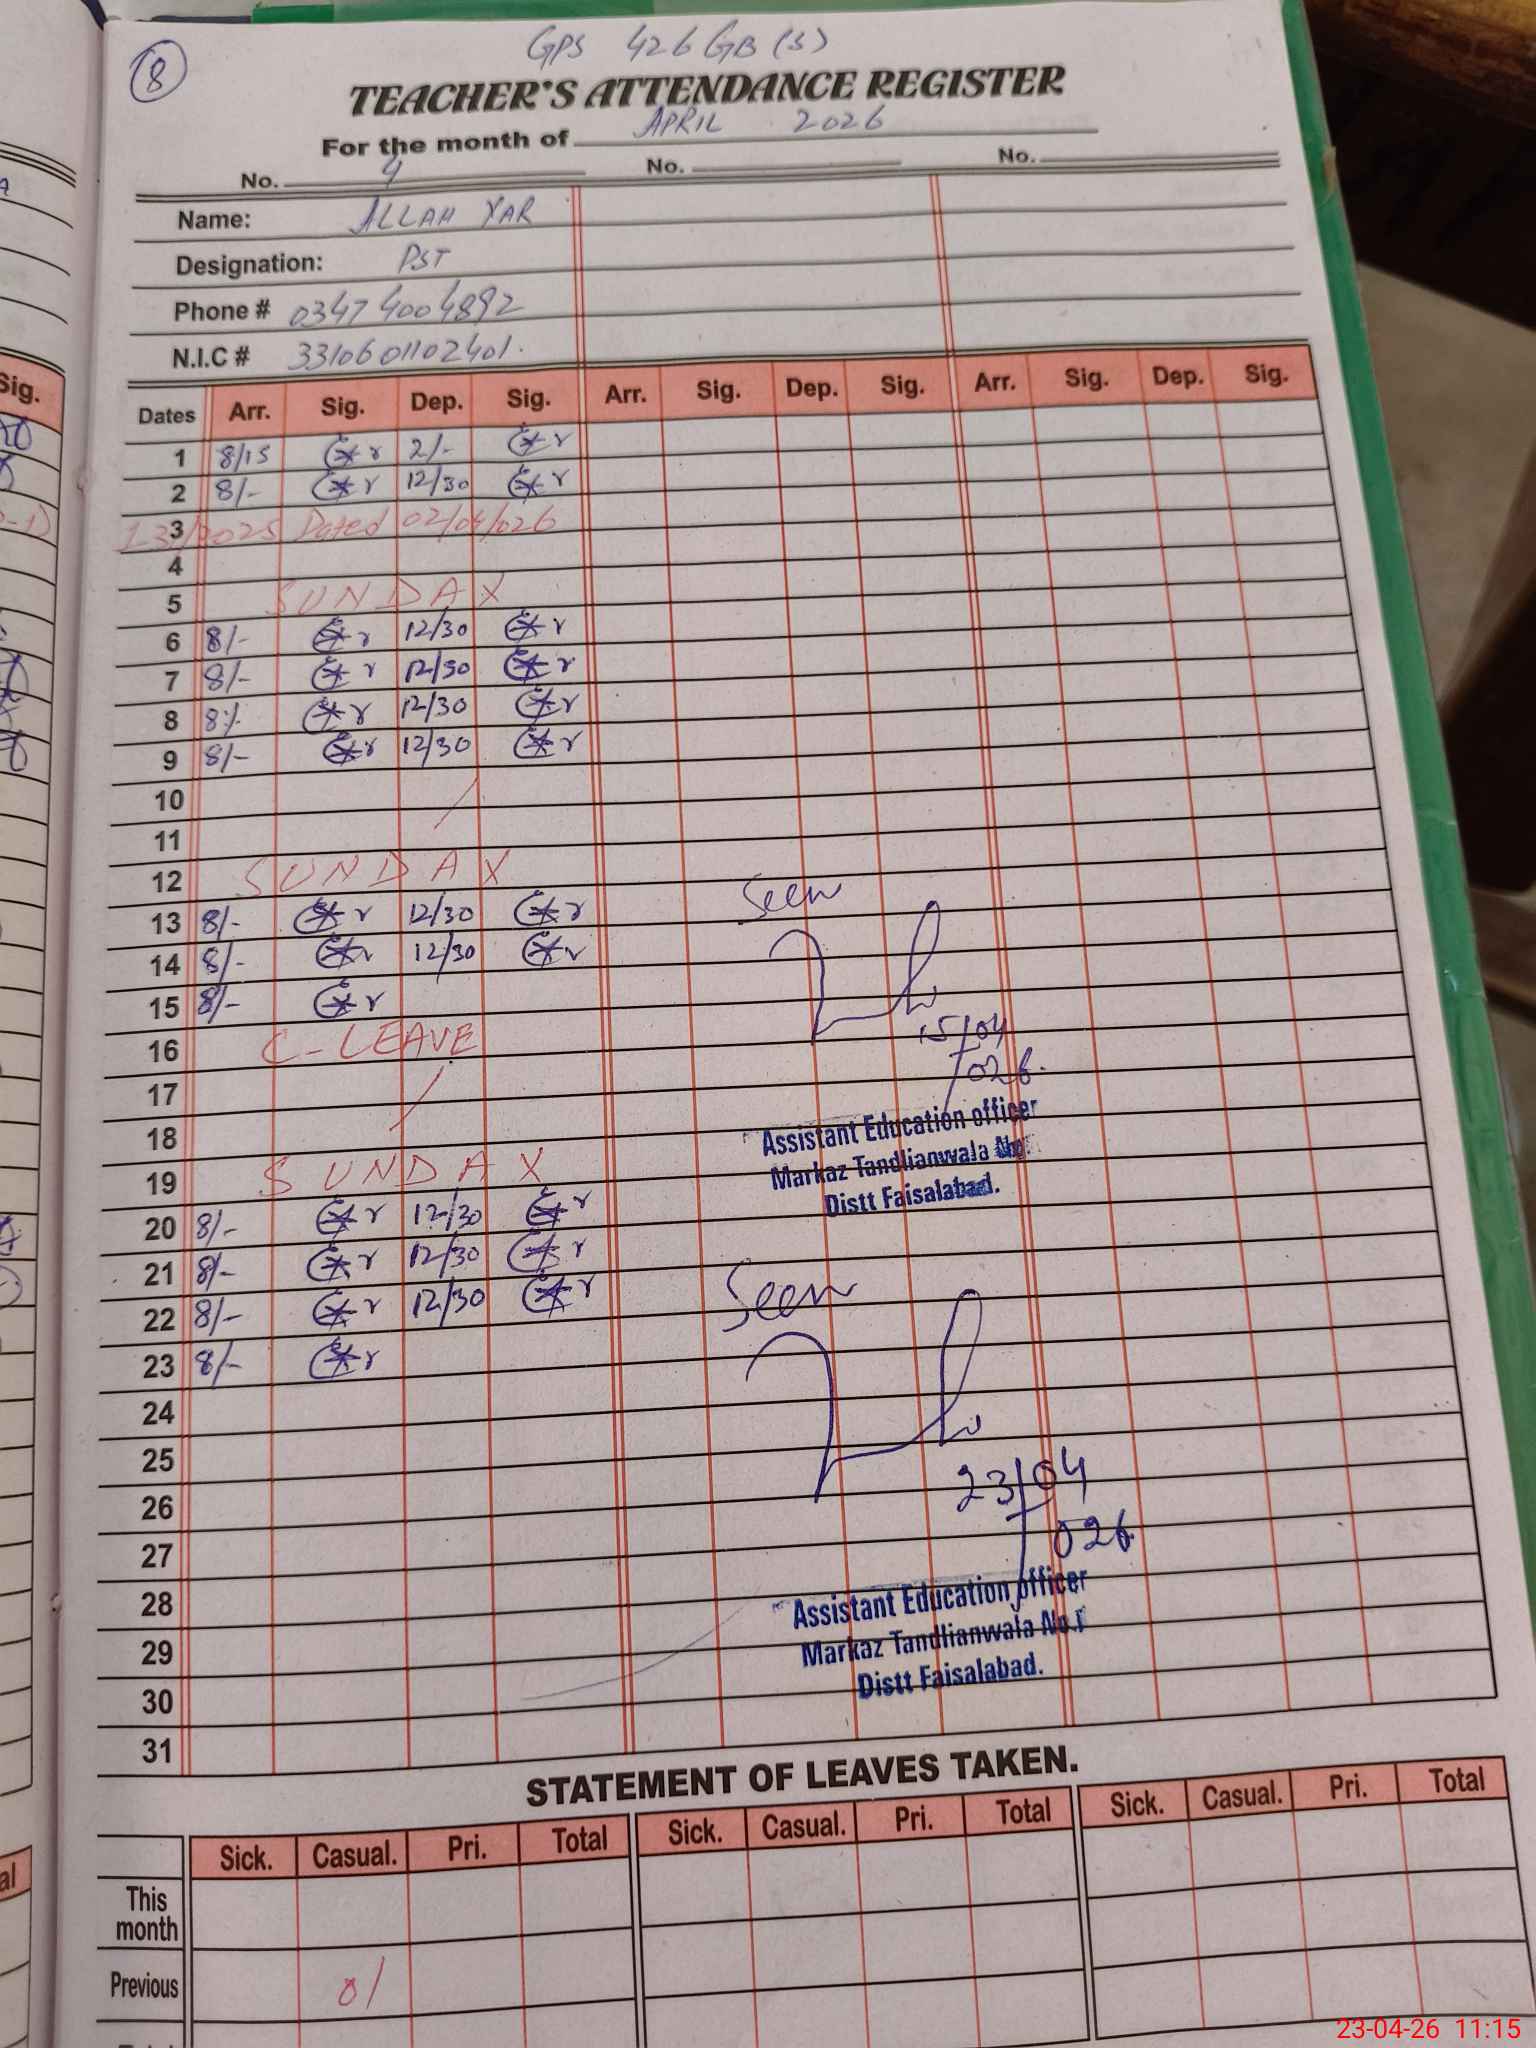 8
GPS 426 GB (S)
TEACHER'S ATTENDANCE REGISTER
For the month of APRIL 2026
No. 4 No. No.
Name: ALLAH YAR
Designation: PST
Phone # 03474004892
N.I.C # 3310601102401.
Dates Arr. Sig. Dep. Sig. Arr. Sig. Dep. Sig. Arr. Sig. Dep. Sig.
1 8/15 2/-
2 8/- 12/30
3 Dated 02/04/026
4
5 SUNDAY
6 8/- 12/30
7 8/- 12/30
8 8/- 12/30
9 8/- 12/30
10
11
12 SUNDAY
13 8/- 12/30
14 8/- 12/30
15 8/-
16 C-LEAVE
17
18
19 SUNDAY
20 8/- 12/30
21 8/- 12/30
22 8/- 12/30
23 8/-
24
25
26
27
28
29
30
31
Seen
15/04
/026.
Assistant Education officer
Markaz Tandlianwala No.
Distt Faisalabad.
Seen
23/04
026.
Assistant Education officer
Markaz Tandlianwala No.I
Distt Faisalabad.
STATEMENT OF LEAVES TAKEN.
Sick. Casual. Pri. Total Sick. Casual. Pri. Total Sick. Casual. Pri. Total
This month
Previous 01
Sig.
23-04-26 11:15